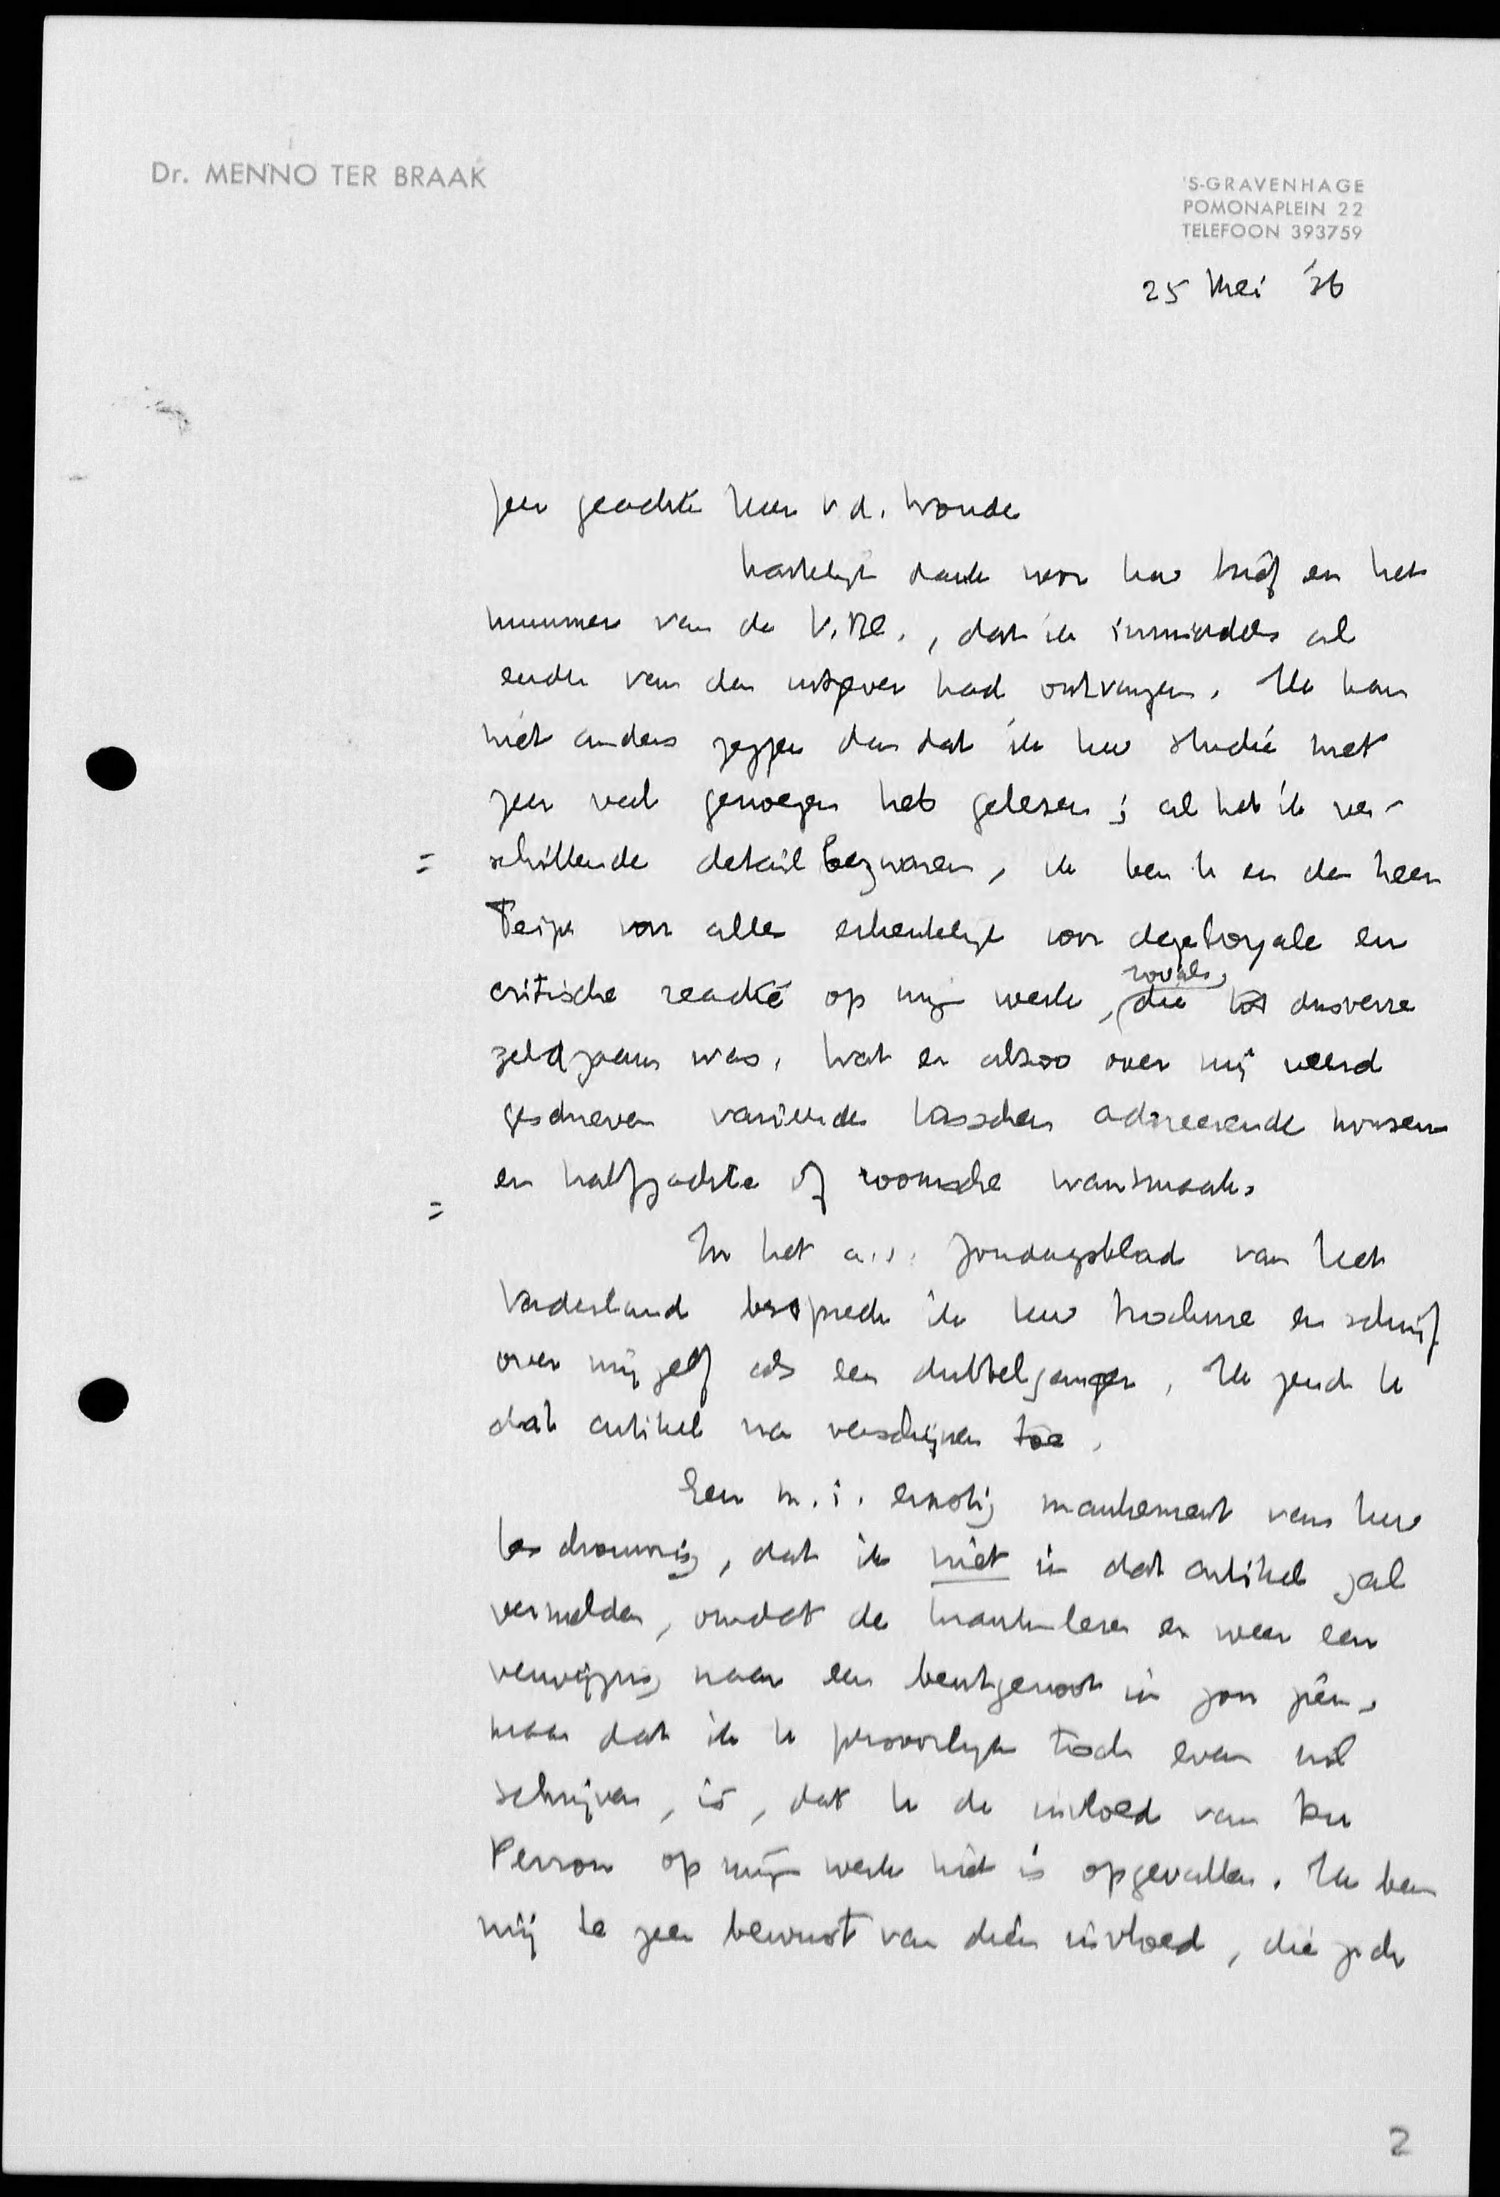 Dr. MENNO TER BRAAK
'S-GRAVENHAGE
POMONAPLEIN 22
TELEFOON 393759
25 Mei '36
Zeer geachte heer v.d. Woude
Hartelijk dank voor Uw brief en het
nummer van de V.Bl., dat ik inmiddels al
eerder van den uitgever had ontvangen. Ik kan
niet anders zeggen dan dat ik Uw studie met
zeer veel genoegen heb gelezen; al heb ik ver-
= schillende detailbezwaren, ik ben U en den heer
voor alles erkentelijk voor deze loyale en
critische reactie op mijn werk, die tot dusverre
zooals
zeldzaam was. Wat er alzoo over mij werd
geschreven varieerde tusschen adoreerende onzin
en halfzachte of roomsche wansmaak.
=
In het a.s. Zondagsblad van Het
Vaderland bespreek ik Uw brochure en schrijf
over mijzelf als een dubbelganger. Ik zend U
dat artikel na verschijnen toe.
Een m.i. ernstig mankement van Uw
beschouwing, dat ik niet in dat artikel zal
vermelden, omdat de krantenlezer er weer een
verwijzing naar een bentgenoot in zou zien,
maar dat ik U persoonlijk toch even wil
schrijven, is, dat U de invloed van Du
Perron op mijn werk niet is opgevallen. Ik ben
mij te zeer bewust van dien invloed, die zich
2